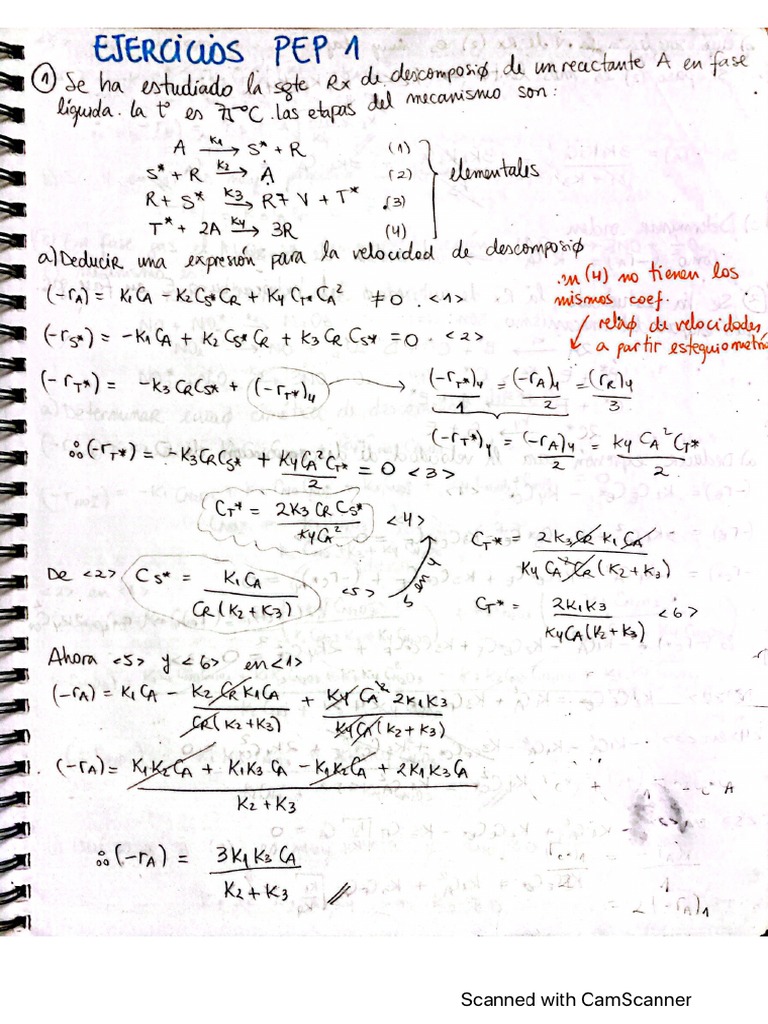 EJERCICIOS PEP 1
① Se ha estudiado la sgte Rx de descomposiø de un reactante A en fase
líquida. La t° es 75°C. las etapas del mecanismo son:
A —K1→ S* + R (1)
S* + R —K2→ A (2)
R + S* —K3→ R + V + T* (3)
T* + 2A —K4→ 3R (4)
elementales
a) Deducir una expresión para la velocidad de descomposiø
(-rA) = K1CA - K2CS*CR + K4CT*CA² ≠ 0 <1>
.en (4) no tienen los
mismos coef.
relaø de velocidades
a partir estequiometría
(-rS*) = -K1CA + K2CS*CR + K3CRCS* = 0 <2>
(-rT*) = -K3CRCS* + (-rT*)4 → (-rT*)4/1 = (-rA)4/2 = (rR)4/3
(-rT*)4 = (-rA)4/2 = K4CA²CT*/2
∴ (-rT*) = -K3CRCS* + K4CA²CT*/2 = 0 <3>
CT* = 2K3CRCS*/K4CA² <4>
CT* = 2K3CRK1CA/K4CA²CR(K2+K3)
De <2> CS* = K1CA/CR(K2+K3) <5>
5 en 4
CT* = 2K1K3/K4CA(K2+K3) <6>
Ahora <5> y <6> en <1>
(-rA) = K1CA - K2CRK1CA/CR(K2+K3) + K4CA²2K1K3/K4CA(K2+K3)
(-rA) = K1K2CA + K1K3CA - K1K2CA + 2K1K3CA/K2+K3
∴ (-rA) = 3K1K3CA/K2+K3
Scanned with CamScanner